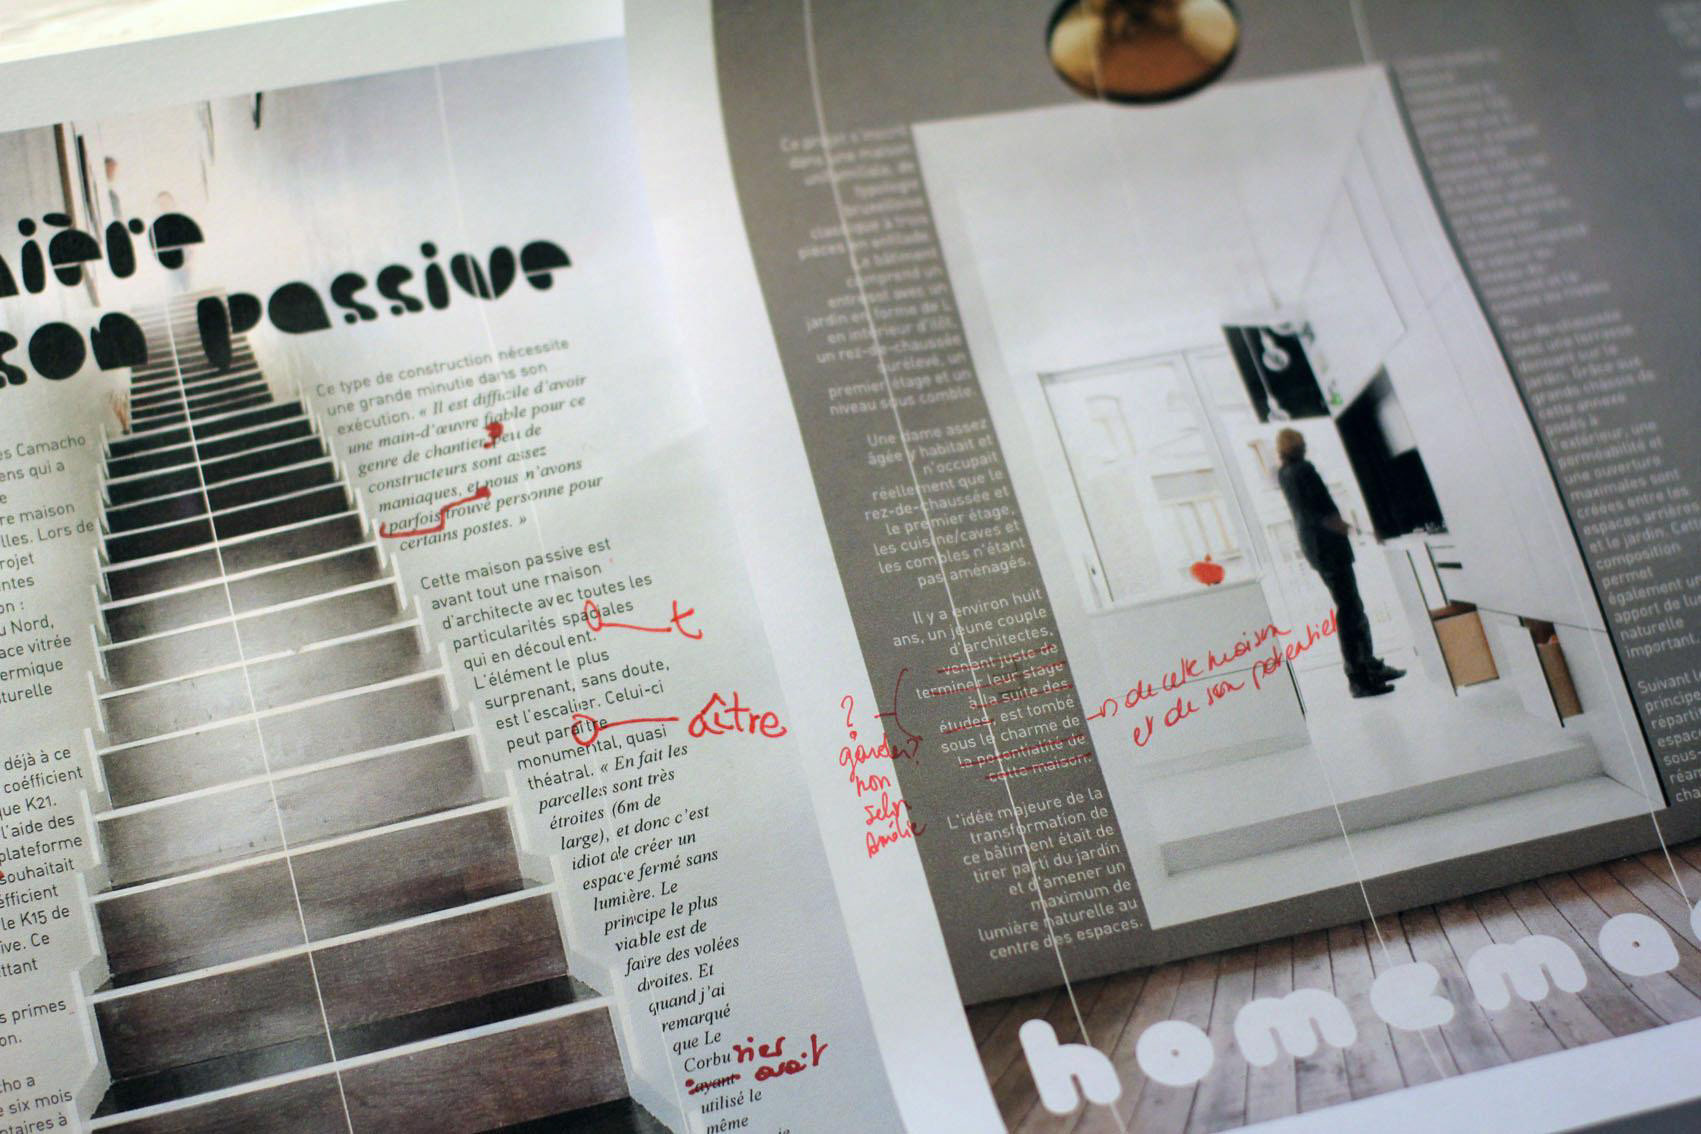 ière
son passive
es Camacho
ens qui a
e
re maison
lles. Lors de
rojet
ntes
on :
u Nord,
ace vitrée
ermique
turelle
déjà à ce
coéfficient
que K21.
l'aide des
plateforme
souhaitait
éfficient
le K15 de
ive. Ce
ettant
s primes
on.
cho a
e six mois
ntaires à
Ce type de construction nécessite
une grande minutie dans son
exécution. « Il est difficile d'avoir
une main-d'œuvre fiable pour ce
genre de chantier, peu de
constructeurs sont assez
maniaques, et nous n'avons
parfois trouvé personne pour
certains postes. »
Cette maison passive est
avant tout une maison
d'architecte avec toutes les
particularités spaciales
t
qui en découlent.
L'élément le plus
surprenant, sans doute,
est l'escalier. Celui-ci
peut paraître
aître
monumental, quasi
théatral. « En fait les
parcelles sont très
étroites (6m de
large), et donc c'est
idiot de créer un
espace fermé sans
lumière. Le
principe le plus
viable est de
faire des volées
droites. Et
quand j'ai
remarqué
que Le
Corbusier
ayant avait
utilisé le
même
Ce projet s'inscrit
dans une maison
unifamiliale, de
typologie
bruxelloise
classique à trois
pièces en enfilade.
Le bâtiment
comprend un
entresol avec un
jardin en forme de L
en intérieur d'îlôt,
un rez-de-chaussée
surelevé, un
premier étage et un
niveau sous comble.
Une dame assez
âgée y habitait et
n'occupait
réellement que le
rez-de-chaussée et
le premier étage,
les cuisine/caves et
les combles n'étant
pas aménagés.
Il y a environ huit
ans, un jeune couple
d'architectes,
venant juste de
terminer leur stage
à la suite des
études, est tombé
sous le charme de
la potentialité de
cette maison.
?
garder?
non
selon
Amélie
de cette maison
et de son potentiel
L'idée majeure de la
transformation de
ce bâtiment était de
tirer parti du jardin
et d'amener un
maximum de
lumière naturelle au
centre des espaces.
rez-de-chaussée
avec une terrasse
donnant sur le
jardin. Grâce aux
grands châssis de
cette annexe
posés à
l'extérieur, une
perméabilité et
une ouverture
maximales sont
créées entre les
espaces arrières
et le jardin. Cette
composition
permet
également un
apport de lu
naturelle
important.
Suivant l
principe
réparti
espac
sous-
réan
cha
homema